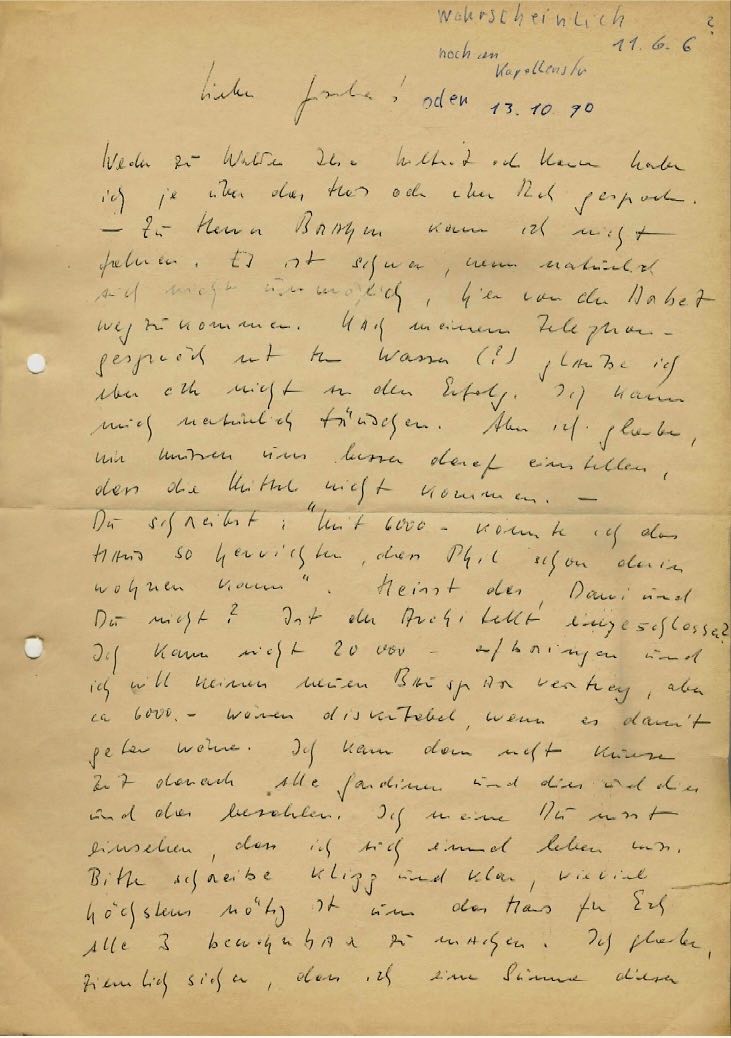 Wahrscheinlich ?
11.6.6
noch in
Kapellenstr
oder 13.10.90
Lieber !
Weder zu Walter noch kann habe
ich je über das Haus oder über Dich gesproch.
– Zu Herrn kann ich nicht
fahren. Es ist schwer, wenn natürlich
auch nicht unmöglich, hier von der Arbeit
wegzukommen. Nach meinem Telephon-
gespräch mit Wasser (?) glaube ich
aber auch nicht an den Erfolg. Ich kann
mich natürlich täuschen. Aber ich glaube,
wir müssen uns besser darauf einstellen,
dass die Mittel nicht kommen. –
Du schreibst: "Mit 6000 – könnte ich das
Haus so herrichten, dass Phil schon darin
wohnen kann". Heisst das, Dani und
Du nicht? Ist der Architekt eingeschlossen?
Ich kann nicht 20 000 – aufbringen und
ich will keinen neuen Bausparvertrag, aber
ca 6000.– wären diskutabel, wenn es damit
getan wäre. Ich kann dann nicht kurze
Zeit danach alle Gardinen und dies und dies
und das bezahlen. Ich meine Du musst
einsehen, dass ich auch einmal leben muss.
Bitte schreibe klipp und klar, wieviel
höchstens nötig ist um das Haus für Euch
alle 3 bewohnbar zu machen. Ich glaube,
ziemlich sicher, dass ich eine Summe dieser